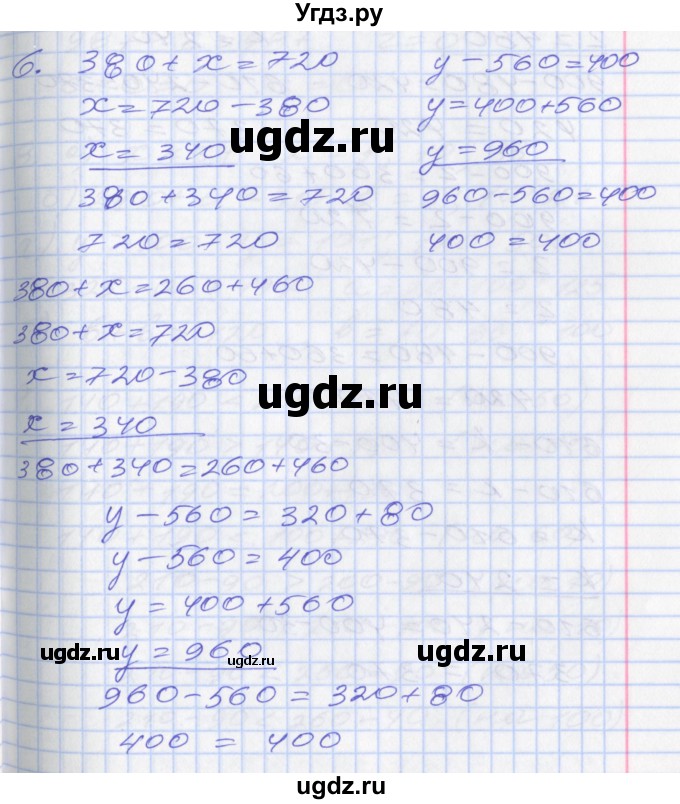 Угдз.ру
6. 380 + x = 720
x = 720 - 380
x = 340
380 + 340 = 720
720 = 720
y - 560 = 400
y = 400 + 560
y = 960
960 - 560 = 400
400 = 400
ugdz.ru
380 + x = 260 + 460
380 + x = 720
x = 720 - 380
x = 340
380 + 340 = 260 + 460
ugdz.ru
y - 560 = 320 + 80
y - 560 = 400
y = 400 + 560
y = 960
960 - 560 = 320 + 80
400 = 400
ugdz.ru
ugdz.ru
ugdz.ru
ugdz.ru